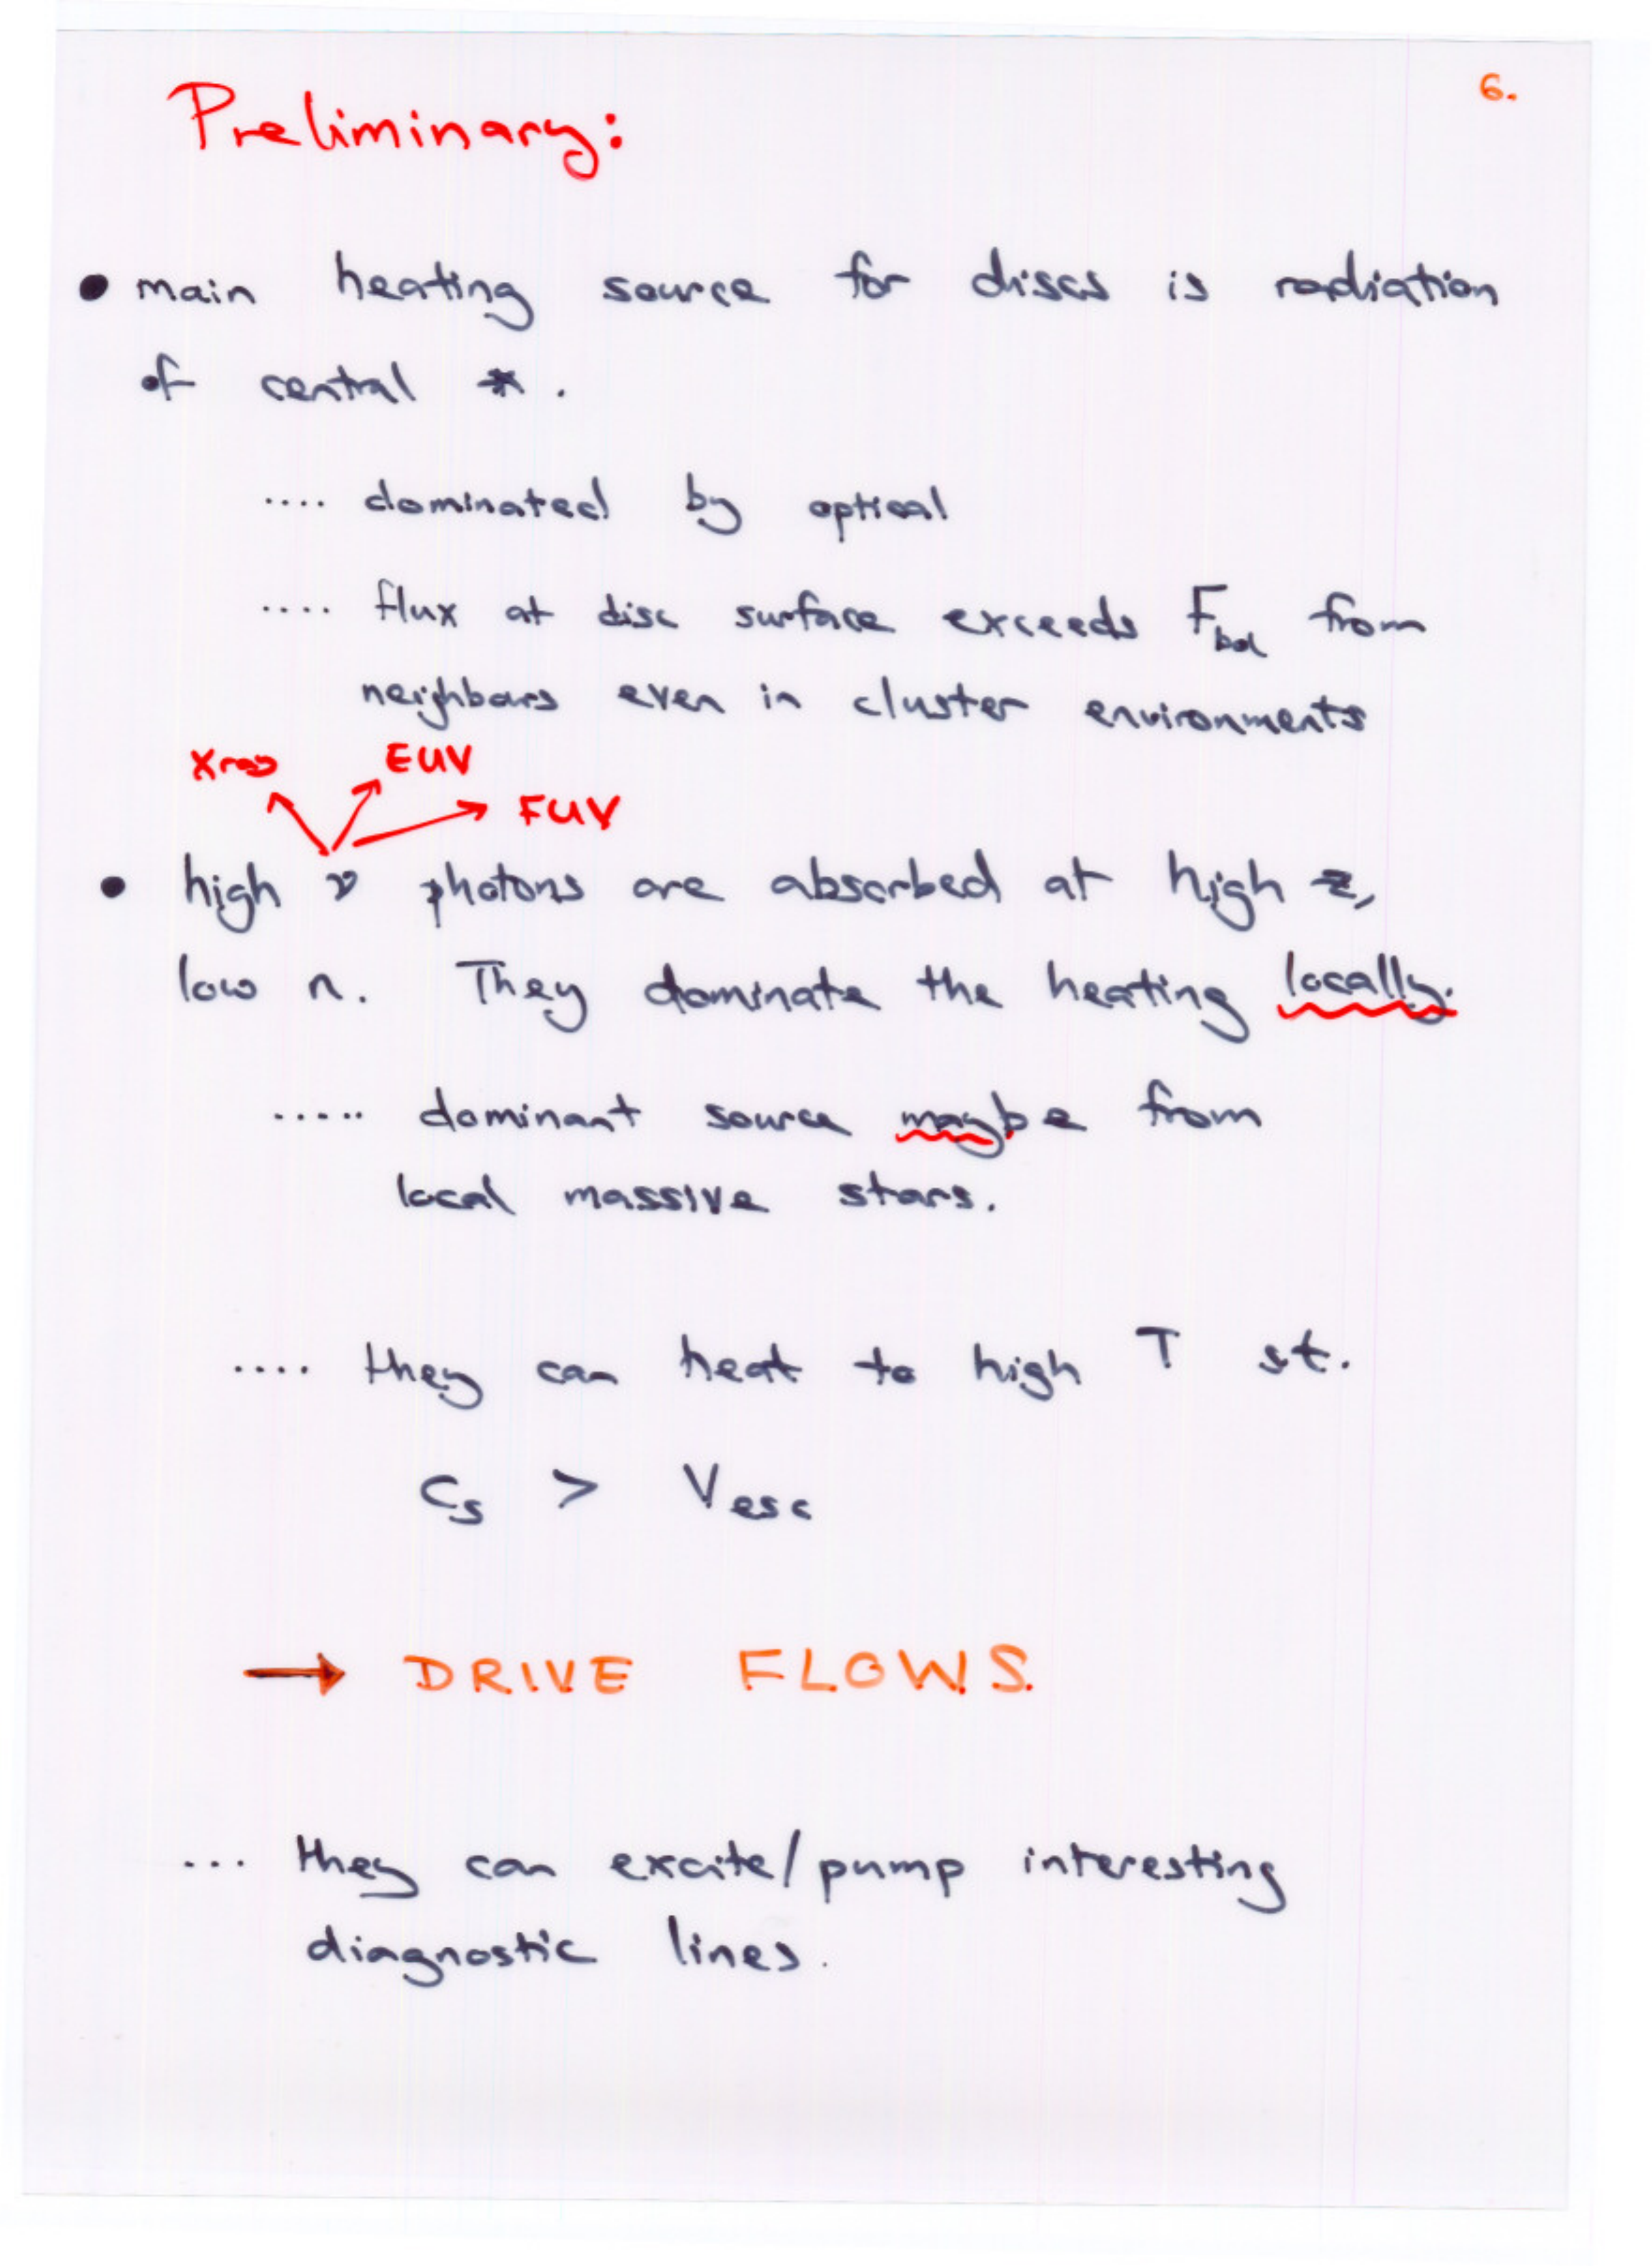 6.
Preliminary:
• main heating source for discs is radiation
of central *.
.... dominated by optical
.... flux at disc surface exceeds F_bol from
neighbours even in cluster environments
Xray EUV
FUV
• high ν photons are absorbed at high z,
low n. They dominate the heating locally.
..... dominant source maybe from
local massive stars.
.... they can heat to high T st.
c_s > V_esc
→ DRIVE FLOWS.
... they can excite/pump interesting
diagnostic lines.